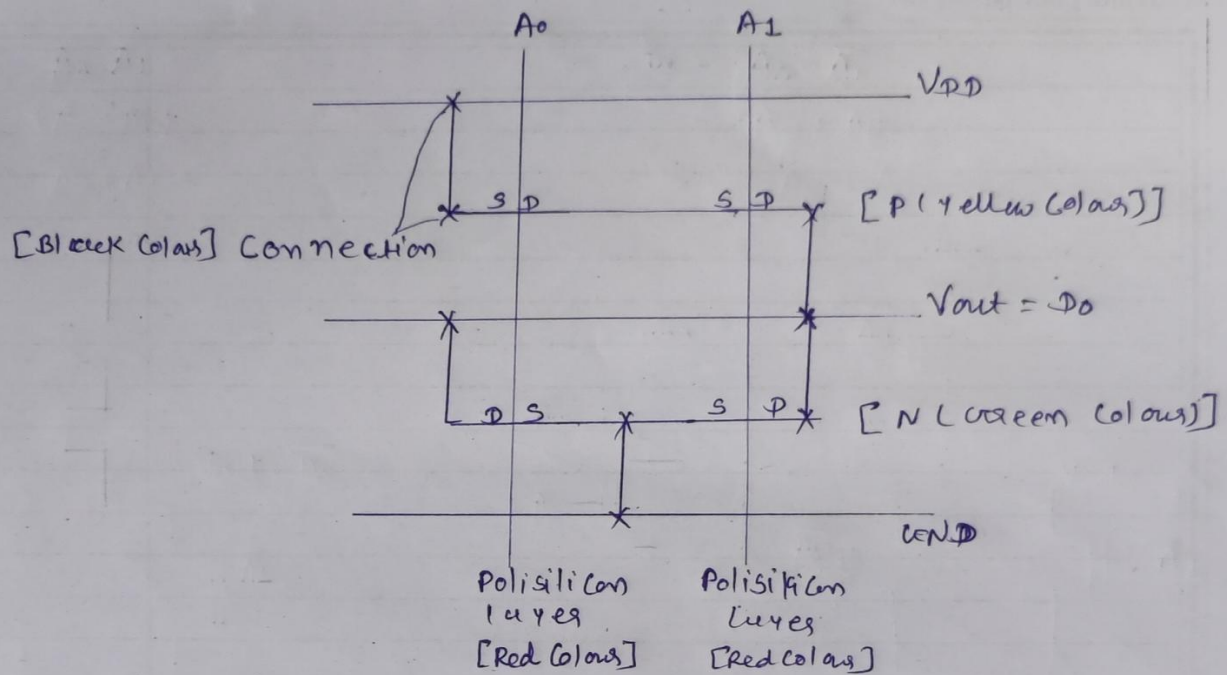 A0 A1
VDD
S D S D [P(Yellow Colour)]
[Black Colour] Connection
Vout = D0
D S S D [N(Green Colour)]
GND
Polisilicon Polisilicon
layer layer
[Red Colour] [Red Colour]